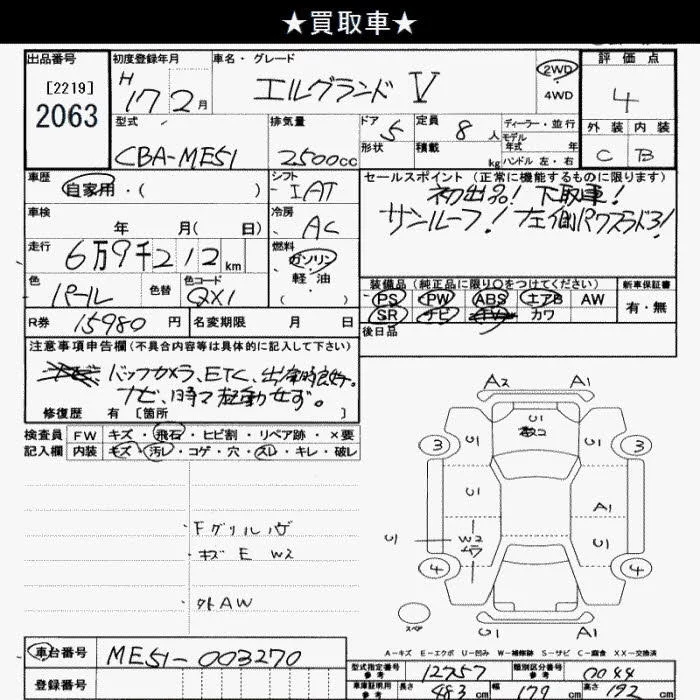 ★買取車★
出品番号 初度登録年月 車名・グレード 評価点
[2219]
2063
H 17 2月
エルグランド V
2WD
・
4WD
4
型式 排気量 ドア 5 定員 8人 ディーラー・並行
外装 内装
CBA-ME51 2500cc 形状 積載 kg モデル年式 年
ハンドル 左・右
C B
車歴 シフト セールスポイント (正常に機能するものに限ります)
自家用・( )
IAT
初出品! 下取車!
サンルーフ! 左側パワスラドア!
車検 年 月( 日) 冷房 AC
走行 6万9千212km 燃料
ガソリン
・
軽・油
・( )
色 パール 色替 色コード QX1
装備品 (純正品に限り○をつけてください) 新車保証書
PS PW ABS エアB AW 有・無
SR ナビ TV カワ
R券 15980円 名変期限 月 日
後日品
注意事項申告欄 (不具合内容等は具体的に記入して下さい)
バックカメラ、ETC、
ナビ、時々起動せず。
修復歴 有 [箇所 ]
検査員 FW キズ・飛石・ヒビ割・リペア跡・×要
記入欄 内装 キズ・汚レ・コゲ・穴・スレ・キレ・破レ
・Fグリル
・キズ E W2
・外AW
A2 A1
U1
3 U1 U1 3
U1 A1
U1 W2 U1
4 4
スペア
U1 A1
A-キズ E-エクボ U-凹み W-補修跡 S-サビ C-腐食 XX-交換済
車台番号 ME51-003270
登録番号
型式指定番号 参考 12757 類別区分番号 参考 0044
車庫証明用 参考 長さ 483cm 幅 179cm 高さ 192cm